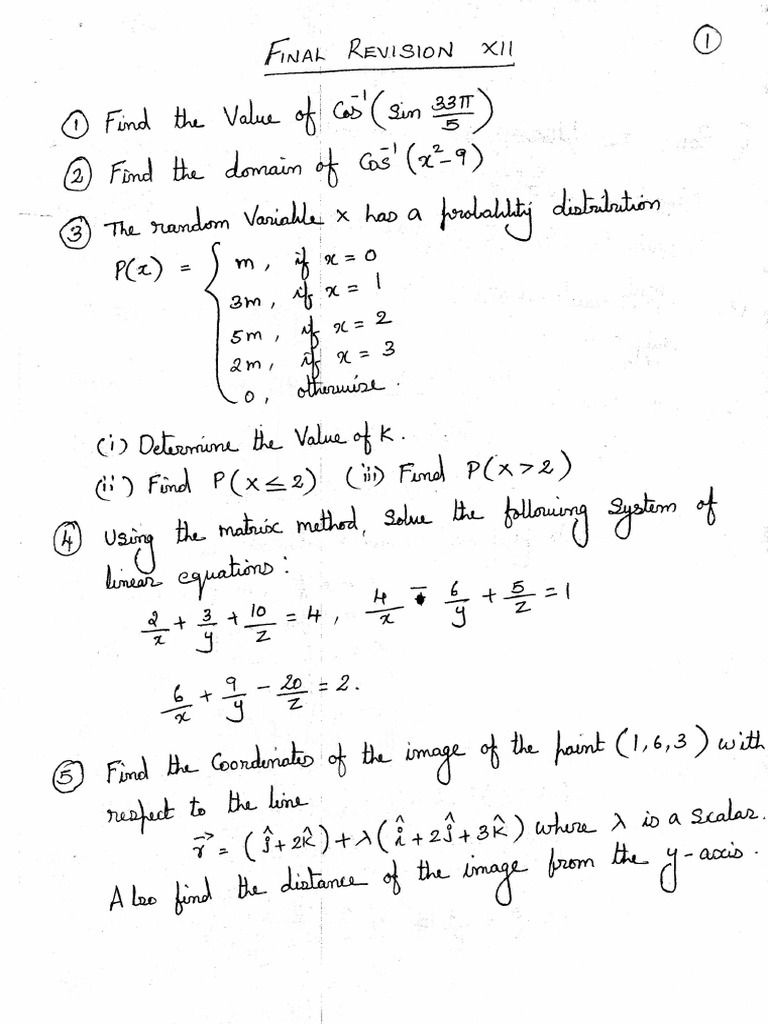 FINAL REVISION XII
①
① Find the Value of Cos⁻¹(Sin 33π/5)
② Find the domain of Cos⁻¹(x²-9)
③ The random Variable X has a probability distribution
P(x) = { m, if x = 0
3m, if x = 1
5m, if x = 2
2m, if x = 3
0, otherwise.
(i) Determine the Value of K.
(ii) Find P(X ≤ 2) (iii) Find P(X > 2)
④ Using the matrix method, Solve the following System of
linear equations:
2/x + 3/y + 10/z = 4, 4/x - 6/y + 5/z = 1
6/x + 9/y - 20/z = 2.
⑤ Find the Coordinates of the image of the point (1,6,3) with
respect to the line
r⃗ = (ĵ+2k̂)+λ(î+2ĵ+3k̂) where λ is a Scalar.
Also find the distance of the image from the y-axis.